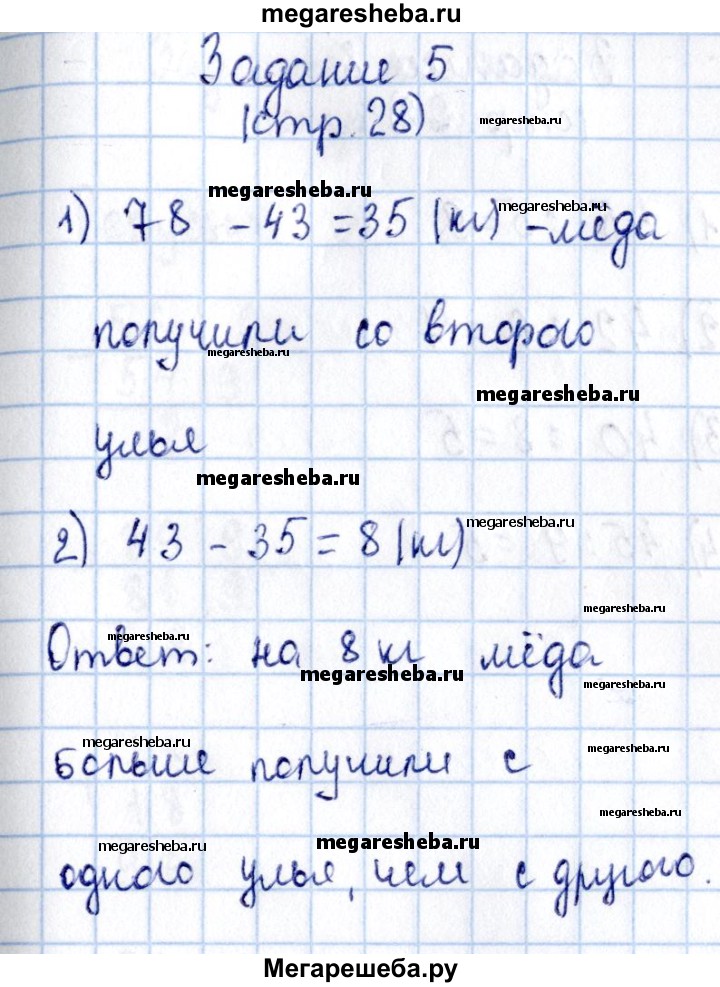 megaresheba.ru
Задание 5
(стр. 28)
megaresheba.ru
megaresheba.ru
megaresheba.ru
1) 78 - 43 = 35 (кг) - мёда
получили со второго
megaresheba.ru
megaresheba.ru
улья
megaresheba.ru
2) 43 - 35 = 8 (кг)
megaresheba.ru
megaresheba.ru
megaresheba.ru
Ответ: на 8 кг мёда
megaresheba.ru
megaresheba.ru
megaresheba.ru
megaresheba.ru
больше получили с
megaresheba.ru
megaresheba.ru
megaresheba.ru
одного улья, чем с другого.
Мегарешеба.ру